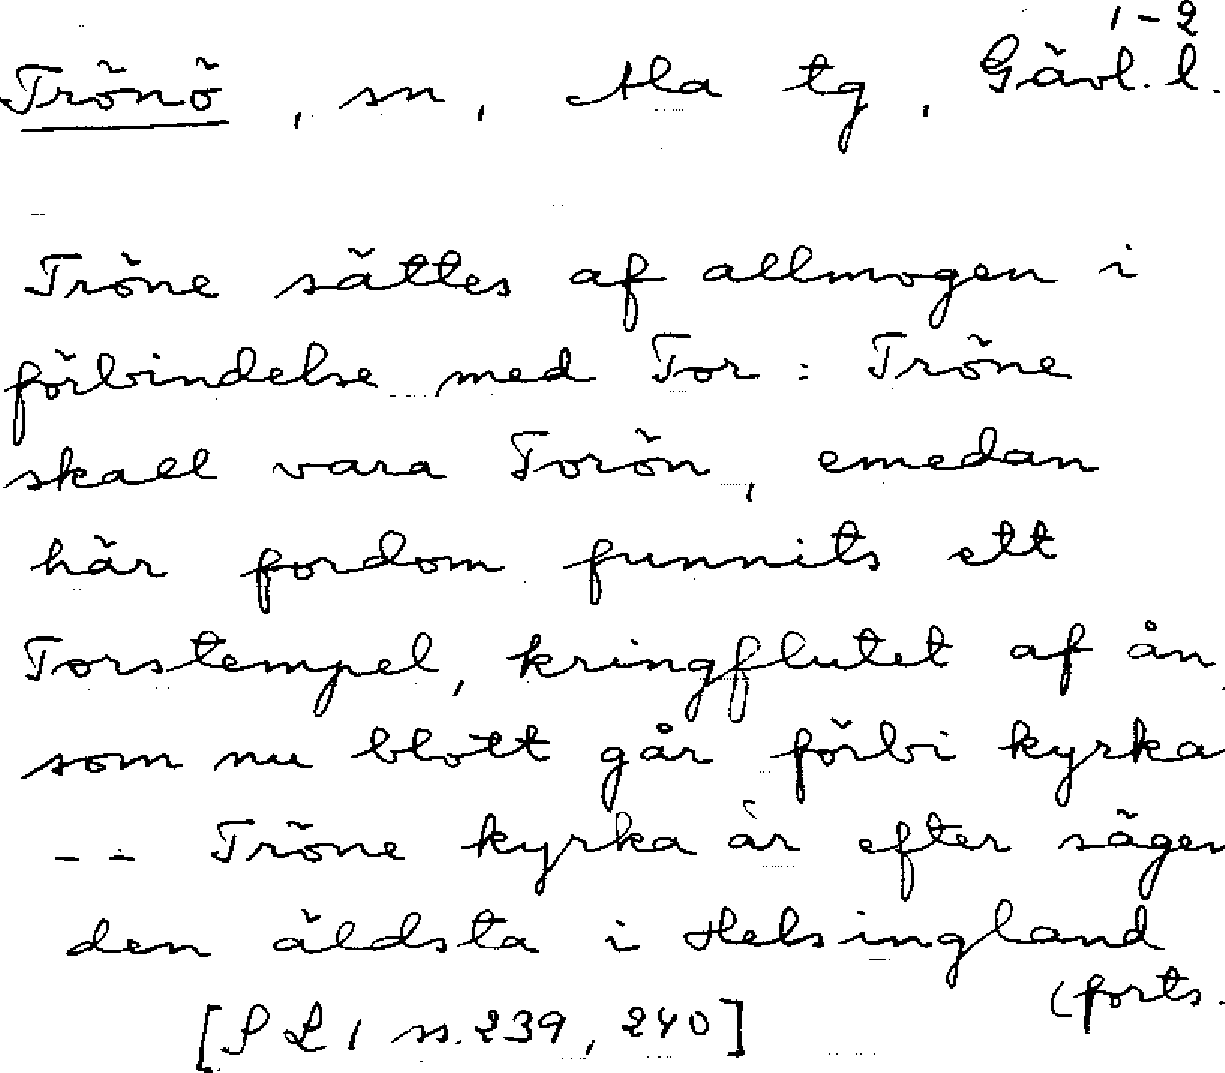 1-2
Trönö, sn, Ala tg, Gävl. l.
Tröne sättes af allmogen i
förbindelse med Tor: Tröne
skall vara Torön, emedan
här fordom funnits ett
Torstempel, kringflutet af ån
som nu blott går förbi kyrka
-- Tröne kyrka är efter sägen
den äldsta i Helsingland
(forts.
[PL 1 ss. 239, 240]